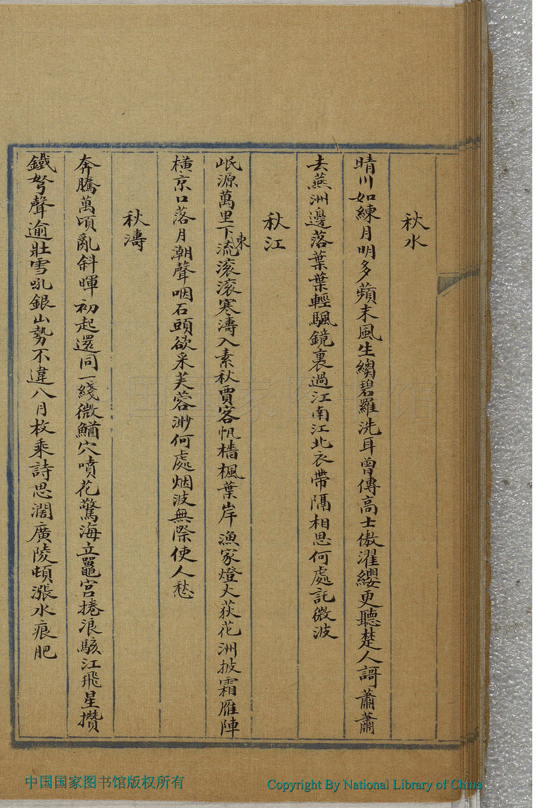 秋水
晴川如練月明多蘋末風生縐碧羅洗耳曾傳高士傲濯纓更聽楚人謌蕭蕭
去蕪洲邊落葉葉輕颿鏡裏過江南江北衣帶隔相思何處託微波
秋江
岷源萬里下東流滾滾寒濤入素秋賈客帆檣楓葉岸漁家燈火荻花洲披霜雁陣
橫京口落月潮聲咽石頭欲采芙蓉渺何處烟波無際使人愁
秋濤
奔騰萬頃亂斜暉初起還同一綫微鰌穴噴花驚海立鼉宮捲浪駭江飛星攢
鐵弩聲逾壯雪吼銀山勢不違八月枚乘詩思濶廣陵頓漲水痕肥
中国国家图书馆版权所有
Copyright By National Library of China